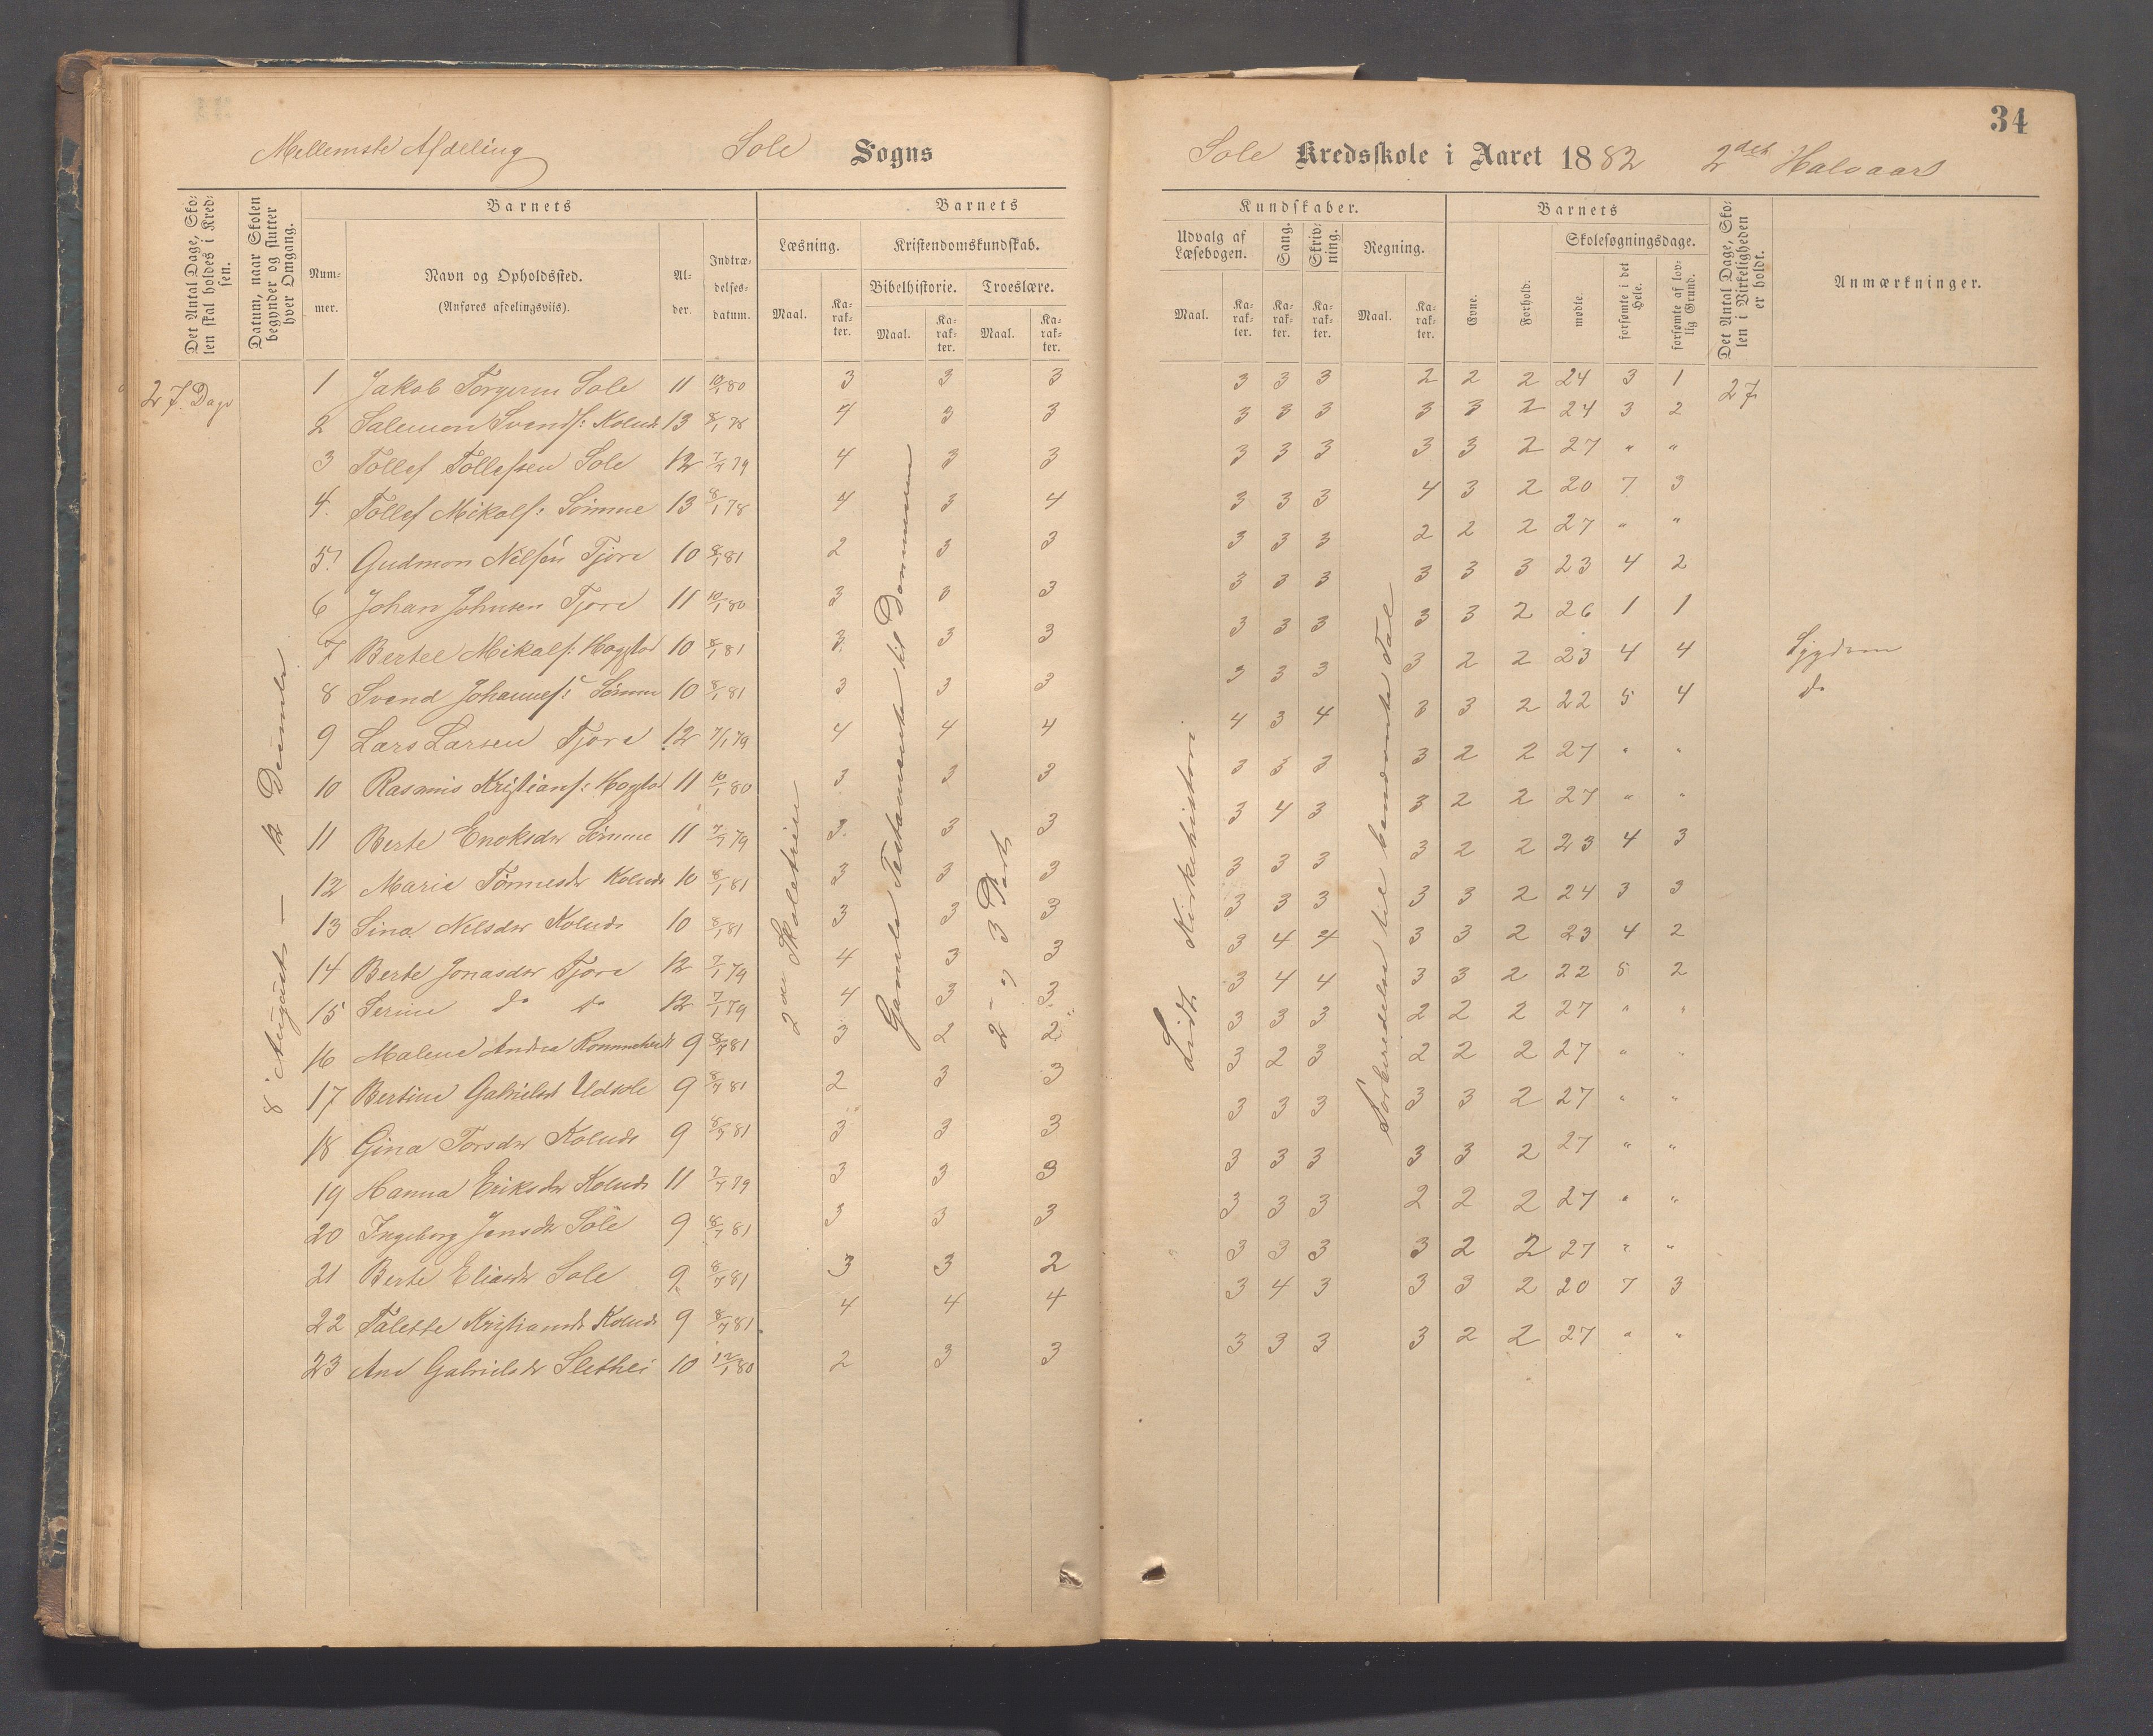 34
Mellemste Afdeling Sole Sogns
Sole Kredsskole i Aaret 1882 2det Halvaar
Det Antal Dage, Skolen skal holdes i Kredsen.
Datum, naar Skolen begynder og slutter hver Omgang.
Barnets
Nummer.
Navn og Opholdssted.
(Anføres afdelingsviis).
Alder.
Indtrædelsesdatum.
Barnets Kundskaber.
Læsning.
Maal. Karakter.
Kristendomskundskab.
Bibelhistorie. Troeslære.
Maal. Karakter. Maal. Karakter.
Udvalg af Læsebogen.
Maal. Karakter.
Sang. Karakter.
Skrivning. Karakter.
Regning.
Maal. Karakter.
Barnets
Evne. Forhold.
Skolesøgningsdage.
mødte. forsømte i det Hele. forsømte af lovlig Grund.
Det Antal Dage, Skolen i Virkeligheden er holdt.
Anmærkninger.
27 Dage
8 August — 12 Decembr
2den Skoletrin
Gamle Testamente til Dommerne
2 - og 3 Part
Lidt Kirkehistori
Forberedelse til benævnte Tal
1 Jakob Torgersen Sole 11 10/1 80 3 3 3 3 3 3 2 2 2 24 3 1 27
2 Salemon Svends: Kolnds 13 8/1 78 4 3 3 3 3 3 3 3 2 24 3 2
3 Tollef Tollefsen Sole 12 7/7 79 4 3 3 3 3 3 3 3 2 27 " "
4. Tollef Mikals: Sömme 13 8/1 78 4 3 4 3 3 3 4 3 2 20 7 3
5. Gudmon Nilsen Tjore 10 8/1 81 2 3 3 3 3 3 2 2 2 27 " "
6 Johan Johnsen Tjore 11 10/1 80 3 3 3 3 3 3 3 3 3 23 4 2
7 Bertel Mikals: Hogstad 10 8/1 81 3 3 3 3 3 3 3 3 2 26 1 1
8 Svend Johannes: Sömme 10 8/1 81 3 3 3 3 3 3 3 2 2 23 4 4 Sygdom
9 Lars Larsen Tjore 12 7/1 79 4 4 4 4 3 4 3 3 2 22 5 4 do
10 Rasmus Kristians: Hogstad 11 10/1 80 3 3 3 3 3 3 3 2 2 27 " "
11 Berte Enoksdr Sömme 11 7/7 79 3 3 3 3 4 3 3 2 2 27 " "
12 Marie Tönnesdr Kolnds 10 8/1 81 3 3 3 3 3 3 3 2 2 23 4 3
13 Sina Nelsdr Kolnds 10 8/1 81 3 3 3 3 3 3 3 3 2 24 3 3
14 Berte Jonasdr Tjore 12 7/1 79 4 3 3 3 4 4 3 3 2 23 4 2
15 Serine do do 12 7/1 79 4 3 3 3 4 4 3 3 2 22 5 2
16 Malene Andrea 9 8/7 81 3 2 2 3 3 3 2 2 2 27 " "
17 Bertine Gabrielsd Udsole 9 8/7 81 2 3 3 3 2 3 2 2 2 27 " "
18 Gina Torsdr Kolnds 9 8/7 81 3 3 3 3 3 3 3 3 2 27 " "
19 Hanna Eriksdr Kolnds 11 7/7 79 3 3 3 3 3 3 3 3 2 27 " "
20 Ingeborg Jansdr Sole 9 8/7 81 3 3 3 3 3 3 2 2 2 27 " "
21 Berte Eliasdr Sole 9 8/7 81 3 3 2 3 3 3 3 2 2 27 " "
22 Talette Kristiansdr Kolnds 9 8/7 81 4 4 4 3 4 3 3 3 2 20 7 3
23 Ane Gabrielsdr Slethei 10 12/1 80 2 3 3 3 3 3 3 2 2 27 " "